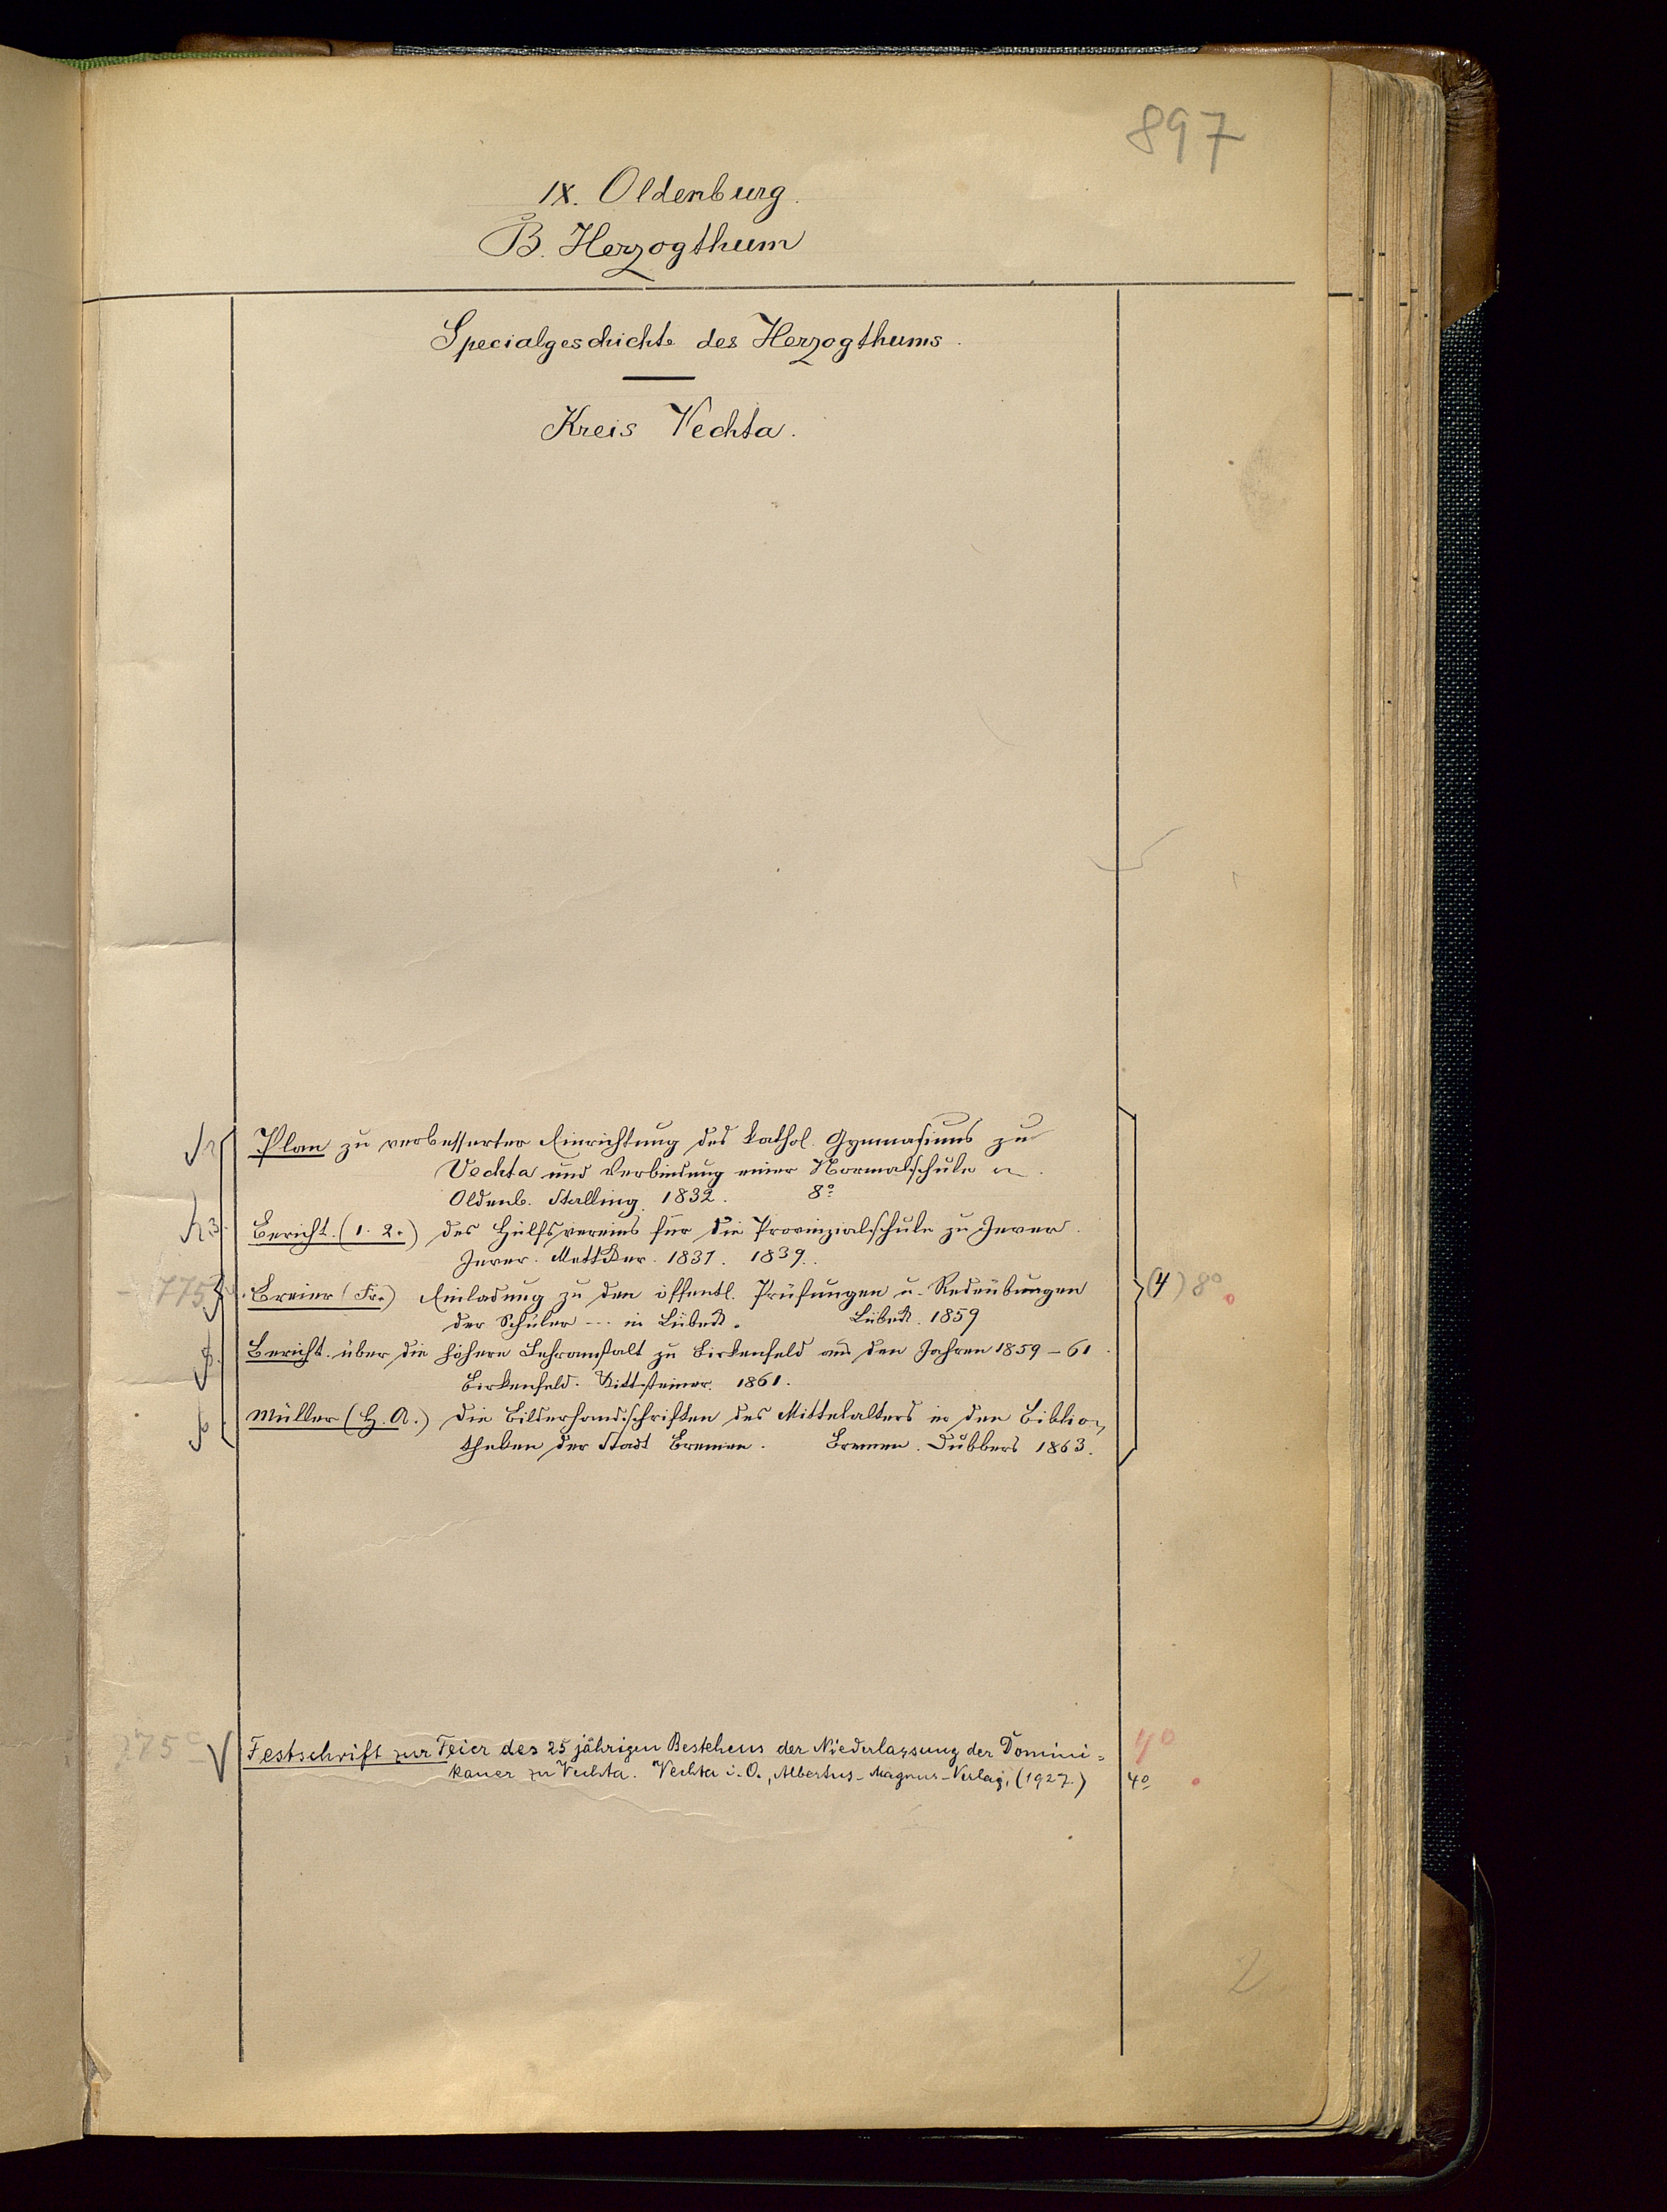 897
IX. Oldenburg.
B. Herzogthum
Specialgeschichte des Herzogthums.
Kreis Vechta.
Plan zu verbesserter Einrichtung des kathol. Gymnasiums zu
Vechta und Verbindung einer Normalschule
Oldenb. Stalling. 1832. 8º
Bericht. (1. 2.) des Hülfsvereins für die Provinzialschule zu Jever.
Jever. Mettcker. 1837. 1839.
775
Breier (Fr.) Einladung zu den öffentl. Prüfungen u. Redeübungen
(4) 8º
der Schüler --- in Lübeck. Lübeck. 1859
Bericht über die höhere Lehranstalt zu Birkenfeld aus den Jahren 1859-61.
Birkenfeld. Kittsteiner. 1861.
Müller (H. A.) Die Bilderhandschriften des Mittelalters in den Biblio-
theken der Stadt Bremen. Bremen. Dubbers 1863.
775c
Festschrift zur Feier des 25 jährigen Bestehens der Niederlassung der Domini=
4º
kaner zu Vechta. Vechta i. O., Albertus-Magnus-Verlag, (1927.)
4º
2